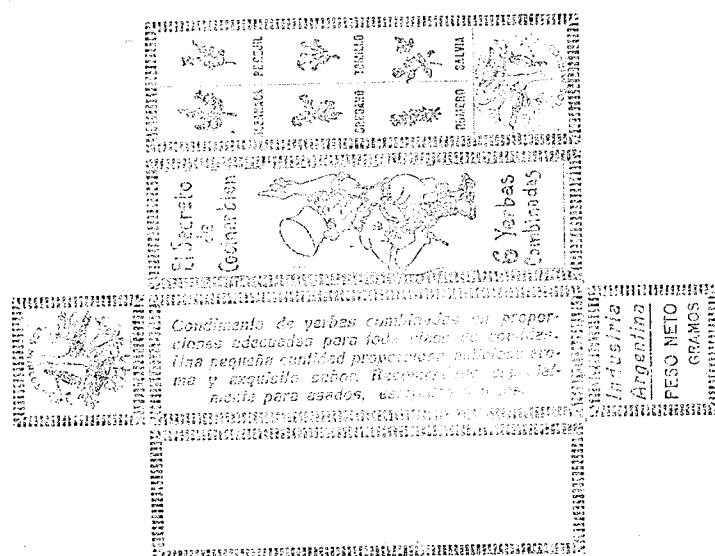 PEREJIL
TOMILLO
SALVIA
OREGANO
ROMERO
El Secreto
de
Cocinar bien
6 Yerbas
Combinadas
Condimento de yerbas combinadas en propor-
ciones adecuadas para toda clase de comidas.
Una pequeña cantidad proporciona delicioso aro-
ma y exquisito sabor. Recomendado especial-
mente para asados,
Industria
Argentina
PESO NETO
GRAMOS